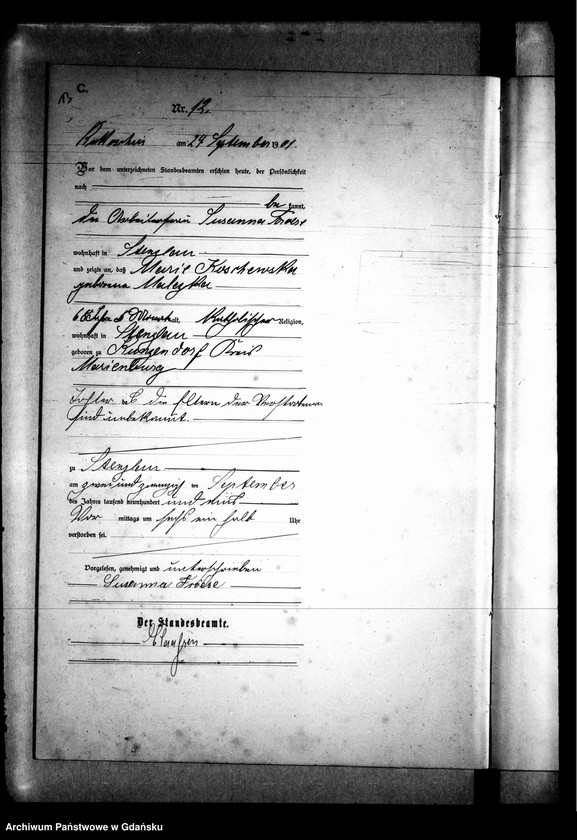 C.
13
Nr. 12.
am 24 September 1901.
Vor dem unterzeichneten Standesbeamten erschien heute, der Persönlichkeit
nach
be kannt,
die Arbeiterfrau Susanna Froese
wohnhaft in Stenzlau
und zeigte an, daß Marie Koschewska
geborene
6 Monat alt, Katholischer Religion,
wohnhaft in Stenzlau
geboren zu Kunzendorf Kreis
Marienburg
Tochter die Eltern der Verstorbenen
sind unbekannt.
zu Stenzlau
am zwei und zwanzigsten September
des Jahres tausend neunhundert und eins
Vor mittags um sechs ein halb Uhr
verstorben sei.
Vorgelesen, genehmigt und unterschrieben
Susanna Froese
Der Standesbeamte.
Claaßen
Archiwum Państwowe w Gdańsku